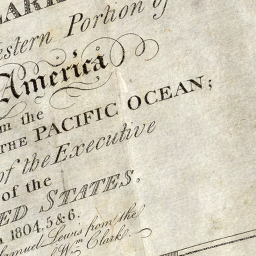 Western Portion of
America
the
THE PACIFIC OCEAN;
of the Executive
of the
STATES,
1804,5&6.
Samuel Lewis from the
Wm. Clark.